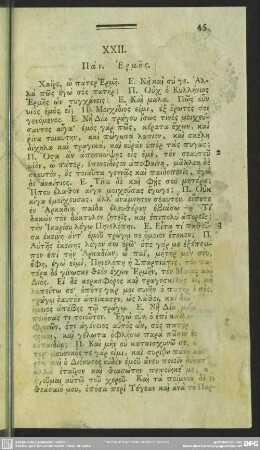 45
XXII.
Πάν. Ἑρμῆς.
Χαῖρε, ὦ πάτερ Ἑρμῆ. Ε. Νὴ καὶ σύ γε. Ἀλ-
λὰ πῶς ἐγώ σὸς πατήρ; Π. Οὐχ ὁ Κυλλήνιος
Ἑρμῆς ὢν τυγχάνεις; Ε. Καὶ μάλα. Πῶς οὖν
υἱὸς ἐμὸς εἶ; Π. Μοιχίδιός εἰμι, ἐξ ἔρωτός σοι
γενόμενος. Ε. Νὴ Δία τράγου ἴσως τινὸς μοιχεύ-
σαντος αἶγα· ἐμὸς γὰρ πῶς, κέρατα ἔχων, καὶ
ῥῖνα τοιαύτην, καὶ πώγωνα λάσιον, καὶ σκέλη
διχηλὰ καὶ τραγικὰ, καὶ οὐρὰν ὑπὲρ τὰς πυγάς;
Π. Ὅσα ἂν ἀποσκώψῃς εἰς ἐμὲ, τὸν σεαυτοῦ
υἱὸν, ὦ πάτερ, ἐπονείδιστον ἀποφαίνεις, μᾶλλον δὲ
σεαυτὸν, ὃς τοιαῦτα γεννᾷς καὶ παιδοποιεῖς, ἐγὼ
δὲ ἀναίτιος. Ε. Τίνα δὲ καὶ φῄς σου μητέρα;
Ἤπου ἔλαθον αἶγα μοιχεύσας ἔγωγε; Π. Οὐκ
αἶγα ἐμοίχευσας, ἀλλ' ἀνάμνησον σεαυτὸν, εἴποτε
ἐν Ἀρκαδίᾳ παῖδα ἐλευθέραν ἐβιάσω· Τί
δακὼν τὸν δάκτυλον ζητεῖς, καὶ ἐπιπολὺ ἀπορεῖς;
τὴν Ἰκαρίου λέγω Πηνελόπην. Ε. Εἶτα τί παθοῦ-
σα ἐκείνη ἀντ' ἐμοῦ τράγῳ σε ὅμοιον ἔτεκεν; Π.
Αὐτῆς ἐκείνης λόγον σοι ἐρῶ· ὅτε γάρ με ἐξέπεμ-
πεν ἐπὶ τὴν Ἀρκαδίαν, ὦ παῖ, μήτηρ μέν σοι,
ἔφη, ἐγώ εἰμι, Πηνελόπη ἡ Σπαρτιᾶτις, τὸν πα-
τέρα δὲ γίνωσκε θεὸν ἔχων Ἑρμῆν, τὸν Μαίας καὶ
Διός. Εἰ δὲ κερασφόρος καὶ τραγοσκελὴς εἶ, μὴ
λυπείτω σε· ὁπότε γάρ μοι συνῄει ὁ πατὴρ ὁ σὸς,
τράγῳ ἑαυτὸν ἀπείκασεν, ὡς λάθοι, καὶ διὰ
ὅμοιος ἀπέβης τῷ τράγῳ. Ε. Νὴ Δία
ποιήσας τι τοιοῦτον. Ἐγὼ οὖν, ὁ ἐπὶ
φρονῶν, ἔτι ἀγένειος αὐτὸς ὢν, σὸς πατὴρ
καὶ γέλωτα ὀφλήσω παρὰ πᾶσιν
εὐπαιδίᾳ; Π. Καὶ μὴν οὐ καταισχυνῶ σε,
τερ· μουσικός τε γάρ εἰμι, καὶ συρίζω πάνυ
καὶ ὁ Διόνυσος οὐδὲν ἐμοῦ ἄνευ ποιεῖν
ἀλλὰ ἑταῖρον καὶ θιασώτην πεποίηταί με,
ἡγοῦμαι αὐτῷ τοῦ χοροῦ. Καὶ τὰ ποίμνια δὲ εἰ
θεάσαιό μου, ὁπόσα περὶ Τέγεαν καὶ ἀνὰ τὸ Παρ-